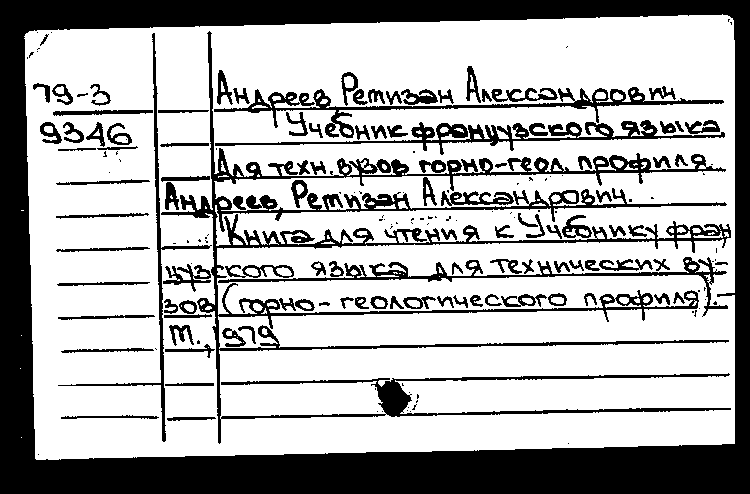 79-3 Андреев, Ремизан Александрович.
9346 Учебник французского языка.
Для техн. вузов горно-геол. профиля.
Андреев, Ремизан Александрович.
Книга для чтения к Учебнику фран
цузского языка для технических ву-
зов (горно-геологического профиля).-
М., 979